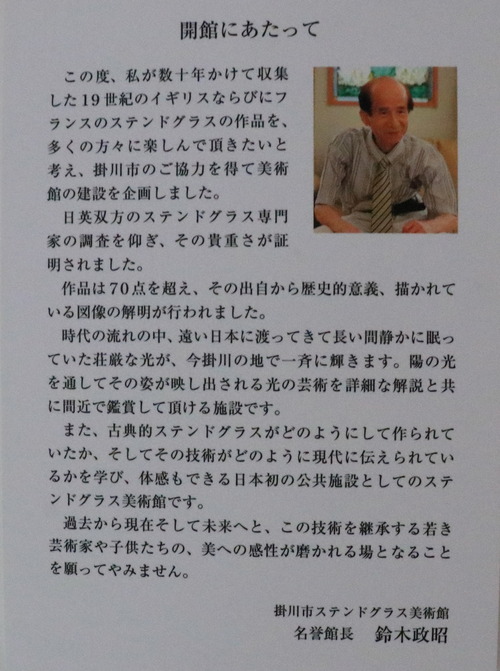 開館にあたって
この度、私が数十年かけて収集
した19世紀のイギリスならびにフ
ランスのステンドグラスの作品を、
多くの方々に楽しんで頂きたいと
考え、掛川市のご協力を得て美術
館の建設を企画しました。
日英双方のステンドグラス専門
家の調査を仰ぎ、その貴重さが証
明されました。
作品は70点を超え、その出自から歴史的意義、描かれて
いる図像の解明が行われました。
時代の流れの中、遠い日本に渡ってきて長い間静かに眠っ
ていた荘厳な光が、今掛川の地で一斉に輝きます。陽の光
を通してその姿が映し出される光の芸術を詳細な解説と共
に間近で鑑賞して頂ける施設です。
また、古典的ステンドグラスがどのようにして作られて
いたか、そしてその技術がどのように現代に伝えられてい
るかを学び、体感もできる日本初の公共施設としてのステ
ンドグラス美術館です。
過去から現在そして未来へと、この技術を継承する若き
芸術家や子供たちの、美への感性が磨かれる場となること
を願ってやみません。
掛川市ステンドグラス美術館
名誉館長 鈴木政昭